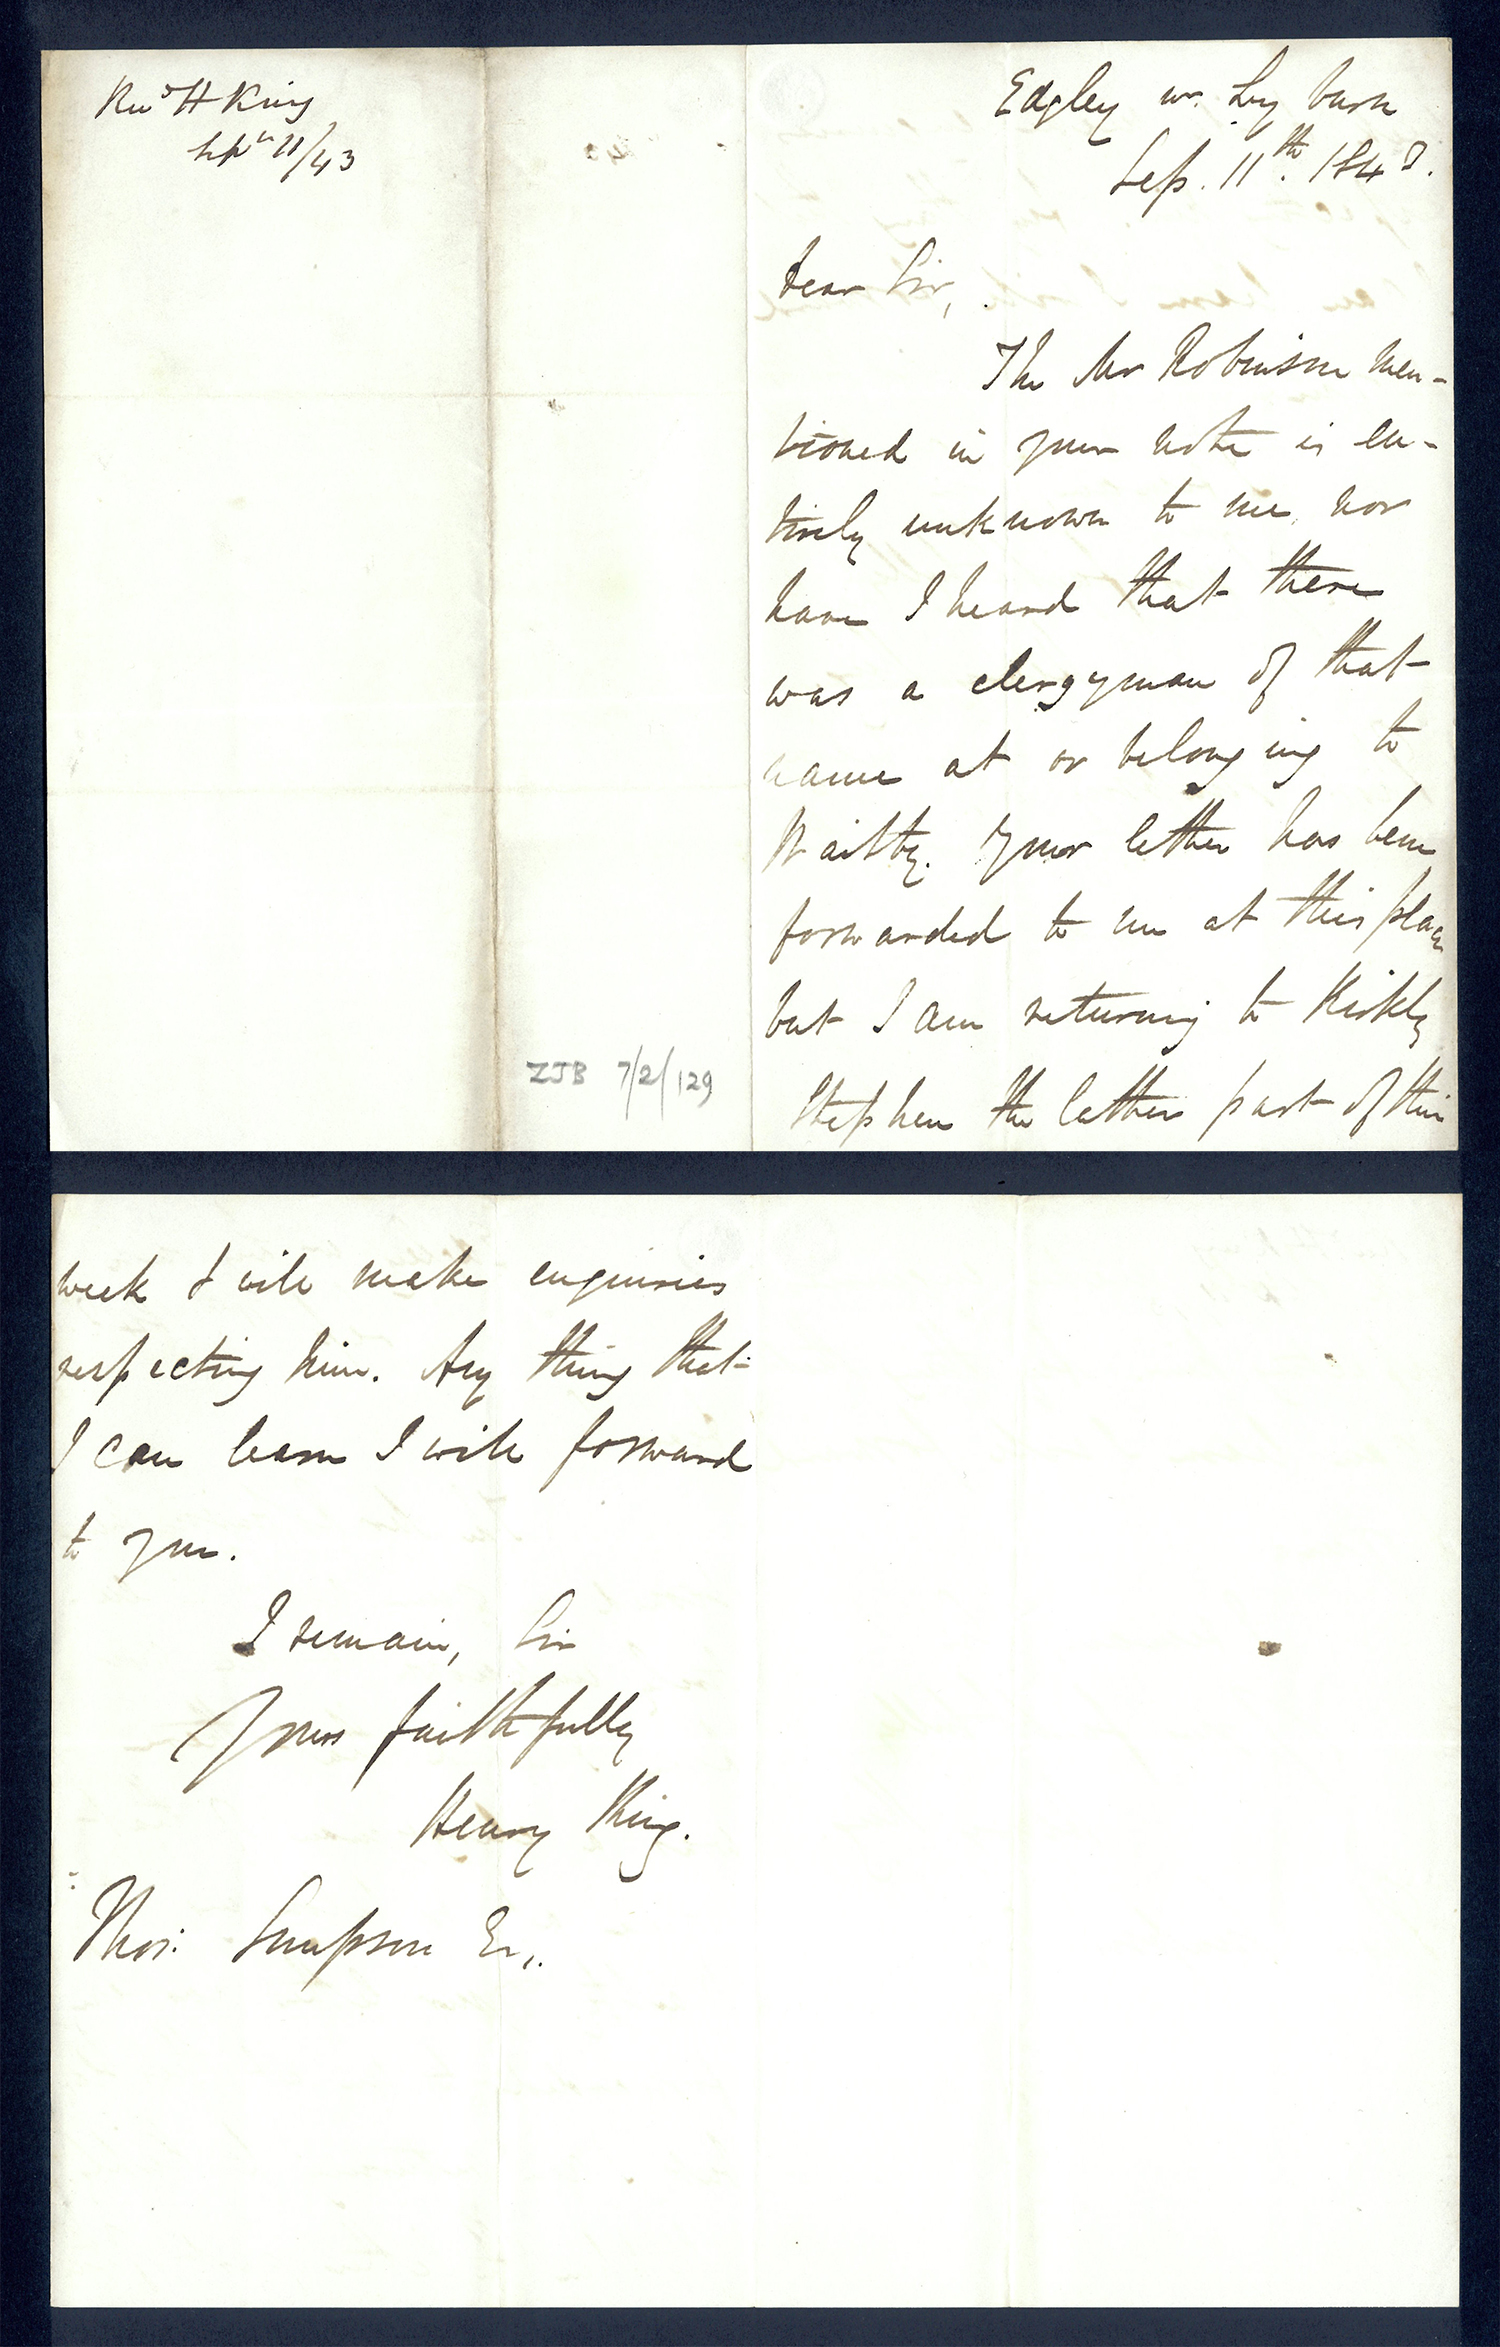 Revd H King
Sepr 11/43
ZJB 7/2/129
Edgley nr. Leyburn
Sep. 11th. 1843.
Dear Sir,
The Mr Robinson men-
tioned in your note is en-
tirely unknown to me, nor
have I heard that there
was a clergyman of that
name at or belonging to
Your letter has been
forwarded to me at this place
but I am returning to Kirkby
Stephen the latter part of this
week & will make enquiries
respecting him. Any thing that
I can learn I will forward
to you.
I remain, Sir
Yours faithfully
Henry King.
Thos: Simpson Esq.